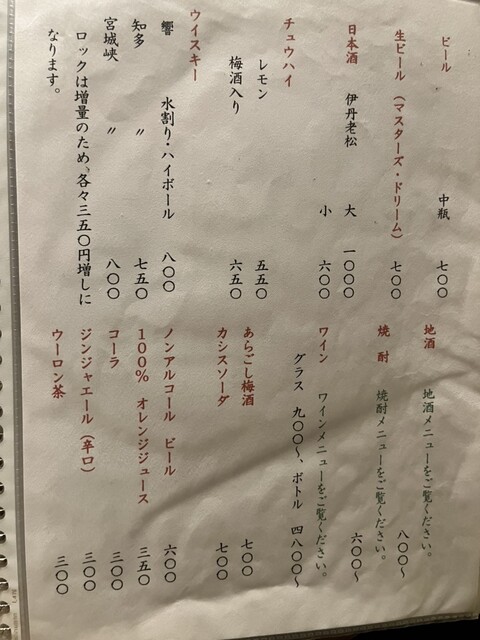 ビール　中瓶　七〇〇
生ビール（マスターズ・ドリーム）　七〇〇
日本酒　伊丹老松　大　一〇〇〇
小　六〇〇
チュウハイ
レモン　五五〇
梅酒入り　六五〇
ウイスキー
響　水割り・ハイボール　八〇〇
知多　〃　七五〇
宮城峡　〃　八〇〇
ロックは増量のため、各々三五〇円増しに
なります。
地酒　地酒メニューをご覧ください。
八〇〇〜
焼酎　焼酎メニューをご覧ください。
六〇〇〜
ワイン　ワインメニューをご覧ください。
グラス　九〇〇〜、ボトル　四八〇〇〜
あらごし梅酒　七〇〇
カシスソーダ　七〇〇
ノンアルコール　ビール　六〇〇
100％　オレンジジュース　三五〇
コーラ　三〇〇
ジンジャエール（辛口）　三〇〇
ウーロン茶　三〇〇